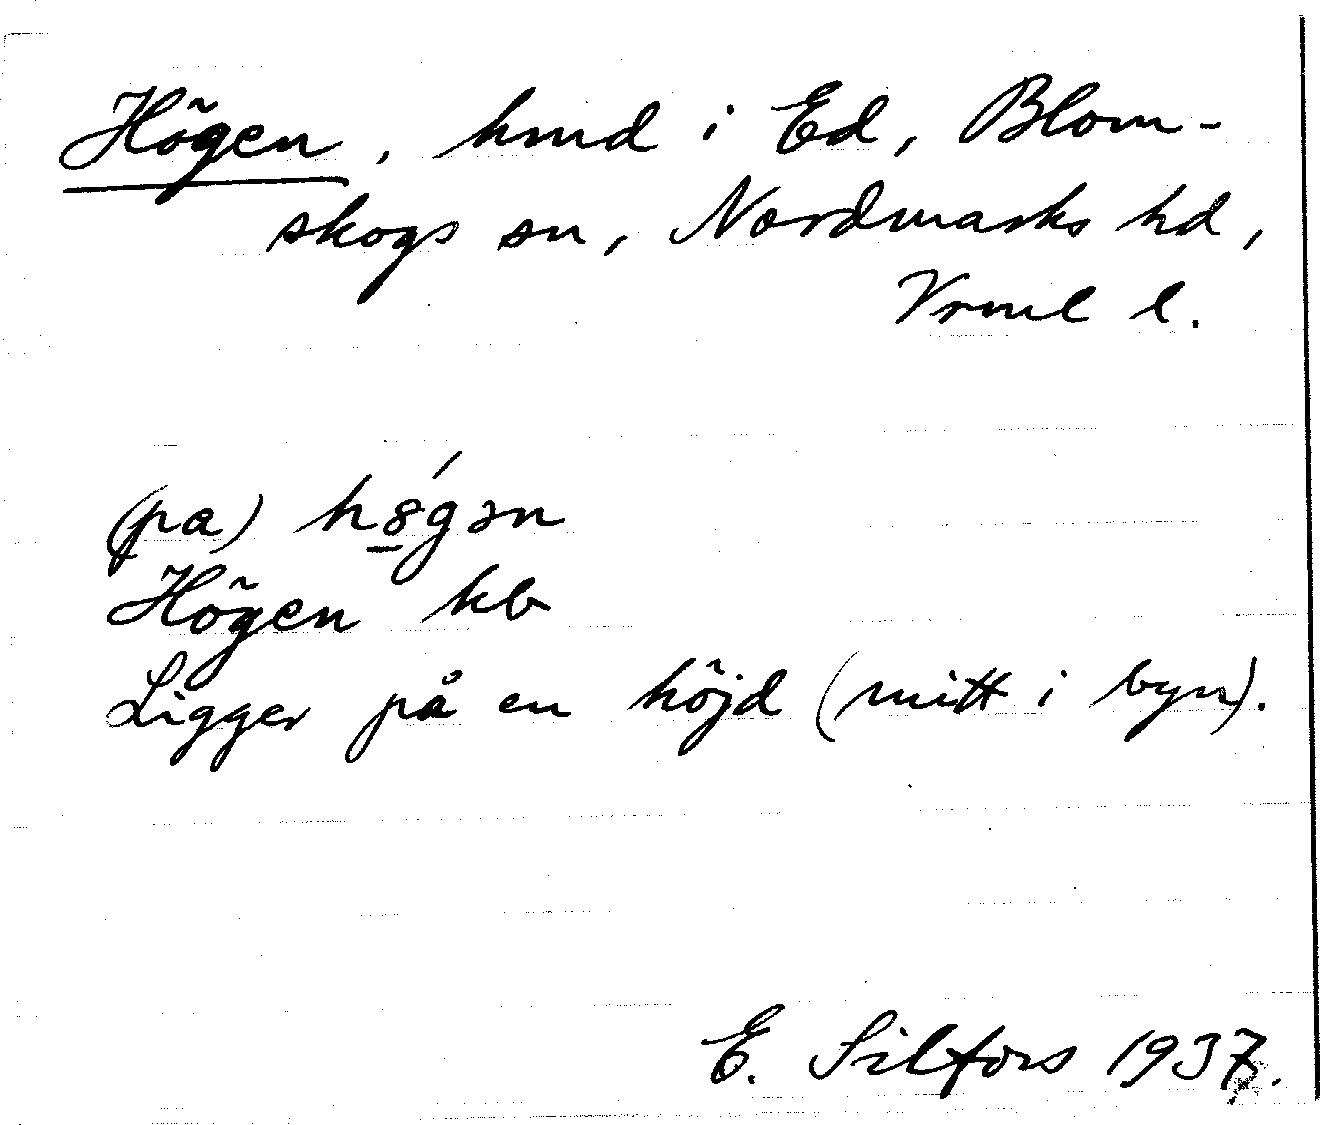 Högen, hmd i Ed, Blom-
skogs sn, Nordmarks hd,
Vrml l.
(pa) h8́gən
Högen kb
Ligger på en höjd (mitt i byn).
E. Silfors 1937.